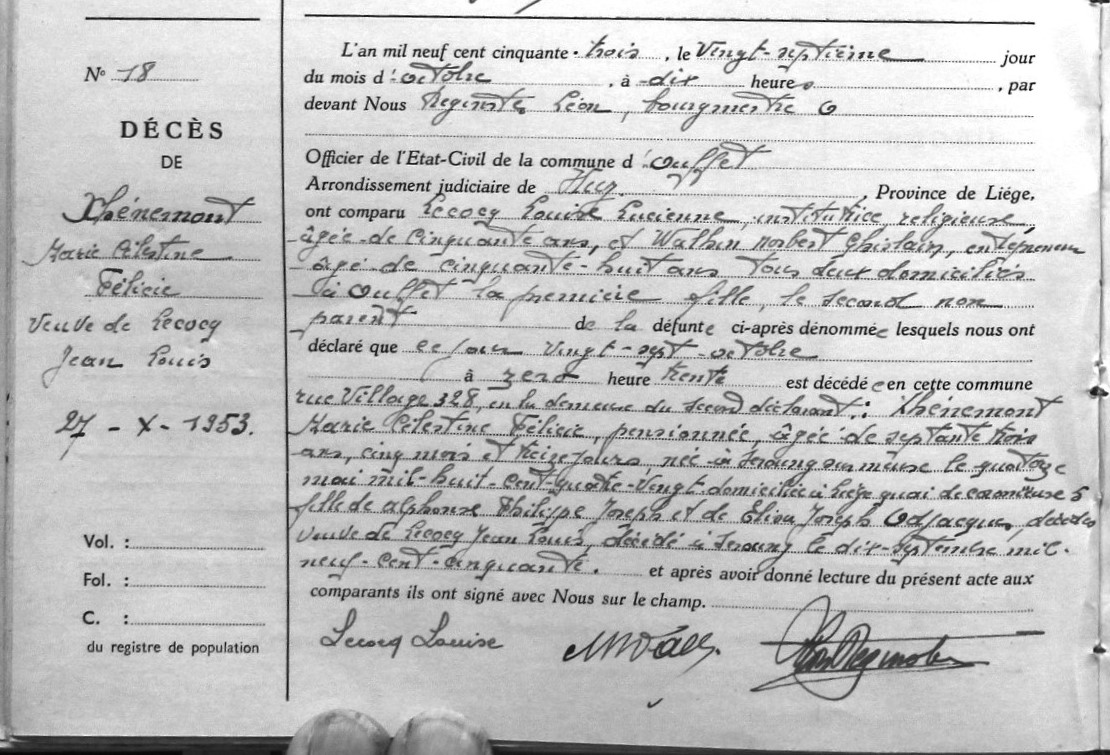 N° 18
DÉCÈS
DE
Thénemont
Marie Célestine
Félicie
Veuve de Lecocq
Jean Louis
27 - X - 1953.
Vol. :
Fol. :
C. :
du registre de population
L'an mil neuf cent cinquante-trois, le Vingt-septième jour
du mois d'octobre, à dix heures, par
devant Nous Léon, bourgmestre
Officier de l'Etat-Civil de la commune d'Ouffet
Arrondissement judiciaire de Huy, Province de Liége,
ont comparu Lecocq Louise Lucienne, institutrice, religieuse
âgée de cinquante ans, et Walhin Norbert Ghislain, entrepreneur
âgé de cinquante-huit ans tous deux domiciliés
à Ouffet la première fille, le second non
parent de la défunte ci-après dénommée lesquels nous ont
déclaré que ce jour vingt-sept octobre
à zéro heure trente est décédée en cette commune
rue Village 328, en la demeure du second déclarant : Thénemont
Marie Célestine Félicie, pensionnée, âgée de septante trois
ans, cinq mois et treize jours, née à Seraing sur meuse le quatorze
mai mil-huit-cent-quatre-vingt domiciliée à Liége quai de 5
fille de Alphonse Philippe Joseph et de Elisa Joseph Odjacques, décédés
Veuve de Lecocq Jean Louis, décédé à Seraing le dix-septembre mil-
neuf-cent-cinquante. et après avoir donné lecture du présent acte aux
comparants ils ont signé avec Nous sur le champ.
Lecocq Louise